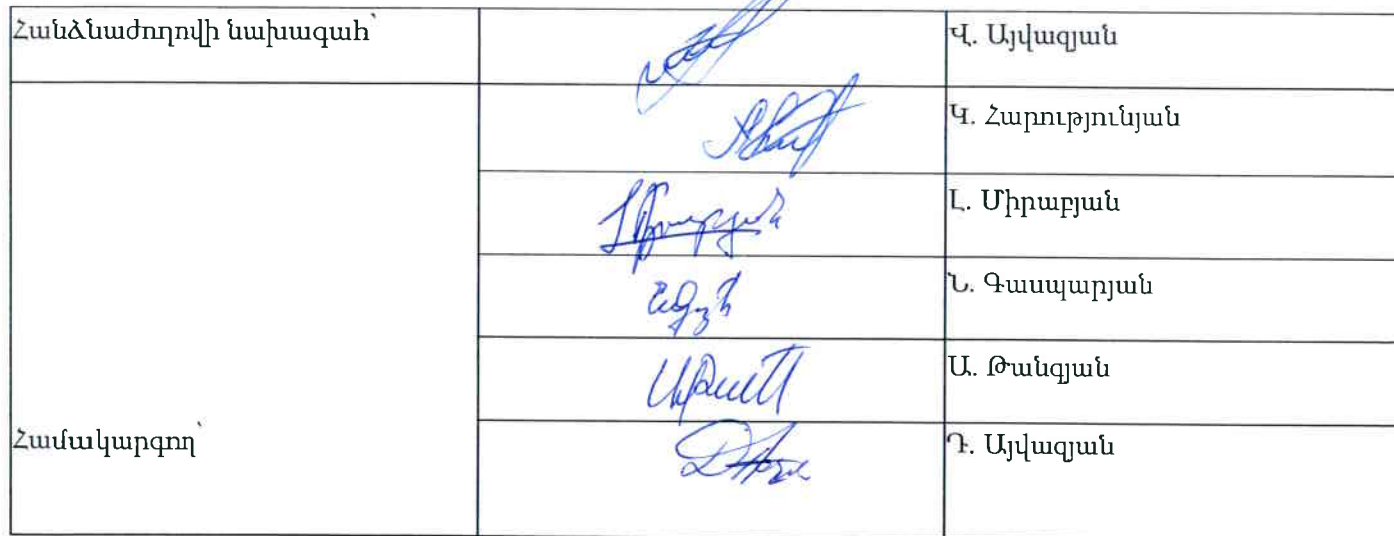 Հանձնաժողովի նախագահ՝
Վ. Այվազյան
Կ. Հարությունյան
Լ. Միրաբյան
Ն. Գասպարյան
Ա. Թանգյան
Համակարգող՝
Դ. Այվազյան